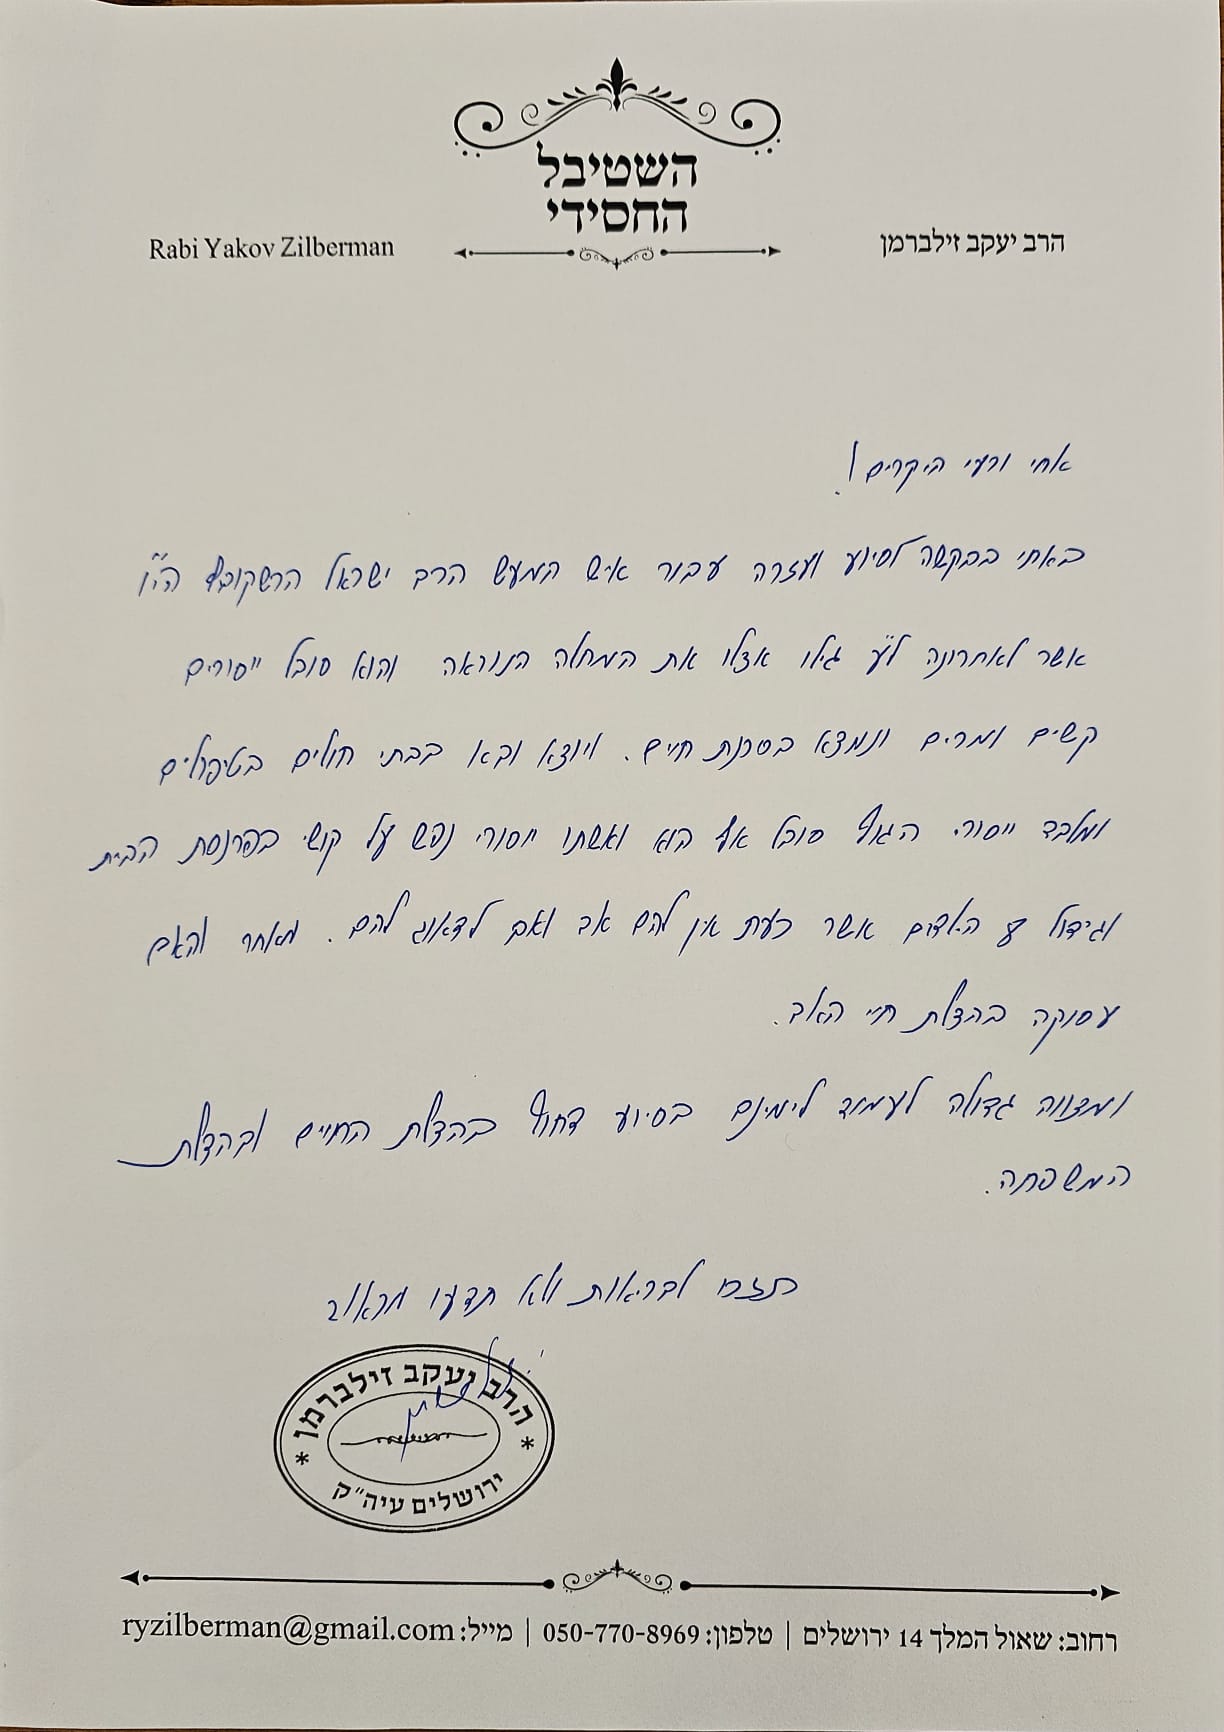 השטיבל
החסידי
הרב יעקב זילברמן
Rabi Yakov Zilberman
אחי ורעי היקרים!
באתי בבקשה לסיוע ועזרה עבור איש המעש הרב ישראל הרשקוביץ הי"ו
אשר לאחרונה ל"ע גילו אצלו את המחלה הנוראה והוא סובל ייסורים
קשים ומרים ונמצא בסכנת חיים. ויוצא ובא בבתי חולים בטיפולים
ומלבד ייסורי הגוף סובל אף הוא ואשתו ייסורי נפש על קושי בפרנסת הבית
וגידול הילדים אשר כעת אין להם אב ואם לדאוג להם. מאחר והאם
עסוקה בהצלת חיי האב.
ומצווה גדולה לעמוד לימינם בסיוע דחוף בהצלת החיים ובהצלת
המשפחה.
תזכו לבריאות ולא תדעו מכאוב
הרב יעקב זילברמן
ירושלים עיה"ק
רחוב: שאול המלך 14 ירושלים | טלפון: 050-770-8969 | מייל: ryzilberman@gmail.com